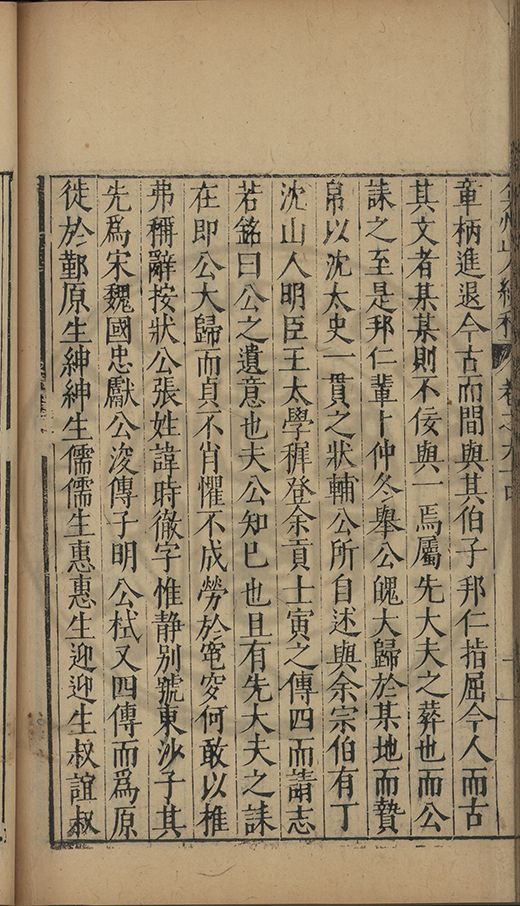 弇州山人續稿 卷之九十四
童柄進退今古而間與其伯子邦仁指屈今人而古
其文者某某則不佞與一焉屬先大夫之葬也而公
誄之至是邦仁輩十仲冬舉公魄大歸於某地而贄
帛以沈太史一貫之狀輔公所自述與余宗伯有丁
沈山人明臣王太學穉登余貢士寅之傳四而請志
若銘曰公之遺意也夫公知巳也且有先大夫之誄
在即公大歸而貞不肖懼不成勞於窀穸何敢以椎
弗稱辭按狀公張姓諱時徹字惟静别號東沙子其
先爲宋魏國忠獻公浚傳子明公栻又四傳而爲原
徙於鄞原生紳紳生儒儒生惠惠生迎迎生叔誼叔